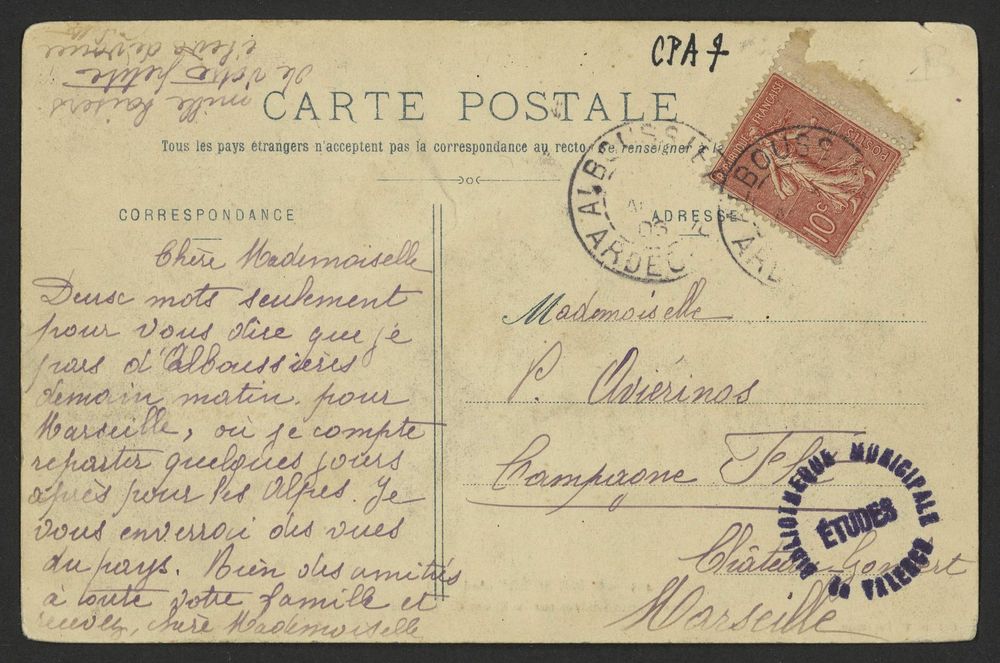 CPA 7
CARTE POSTALE
Tous les pays étrangers n'acceptent pas la correspondance au recto. Se renseigner
CORRESPONDANCE
Chère Mademoiselle
Deux mots seulement
pour vous dire que je
pars d'Alboussières
demain matin pour
Marseille, où je compte
repartir quelques jours
après pour les Alpes. Je
vous enverrai des vues
du pays. Bien des amitiés
à toute votre famille et
recevez, chère Mademoiselle
mille baisers
de votre petite
élève dévouée
ADRESSE
Mademoiselle
P. Aviérinos
Campagne
Château Gombert
Marseille
ALBOUSSIE
06
ARDEC
ALBOUSS
ARD
FRANÇAISE
POSTES
10c
BIBLIOTHEQUE MUNICIPALE
ÉTUDES
de VALENCE